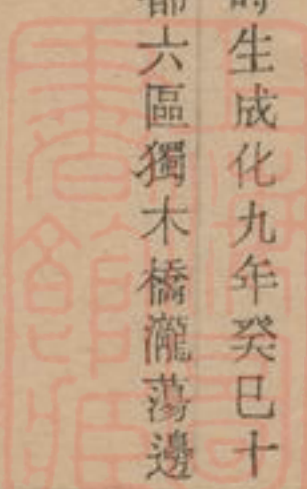 生成化九年癸巳十
六區獨木橋瀧蕩邊